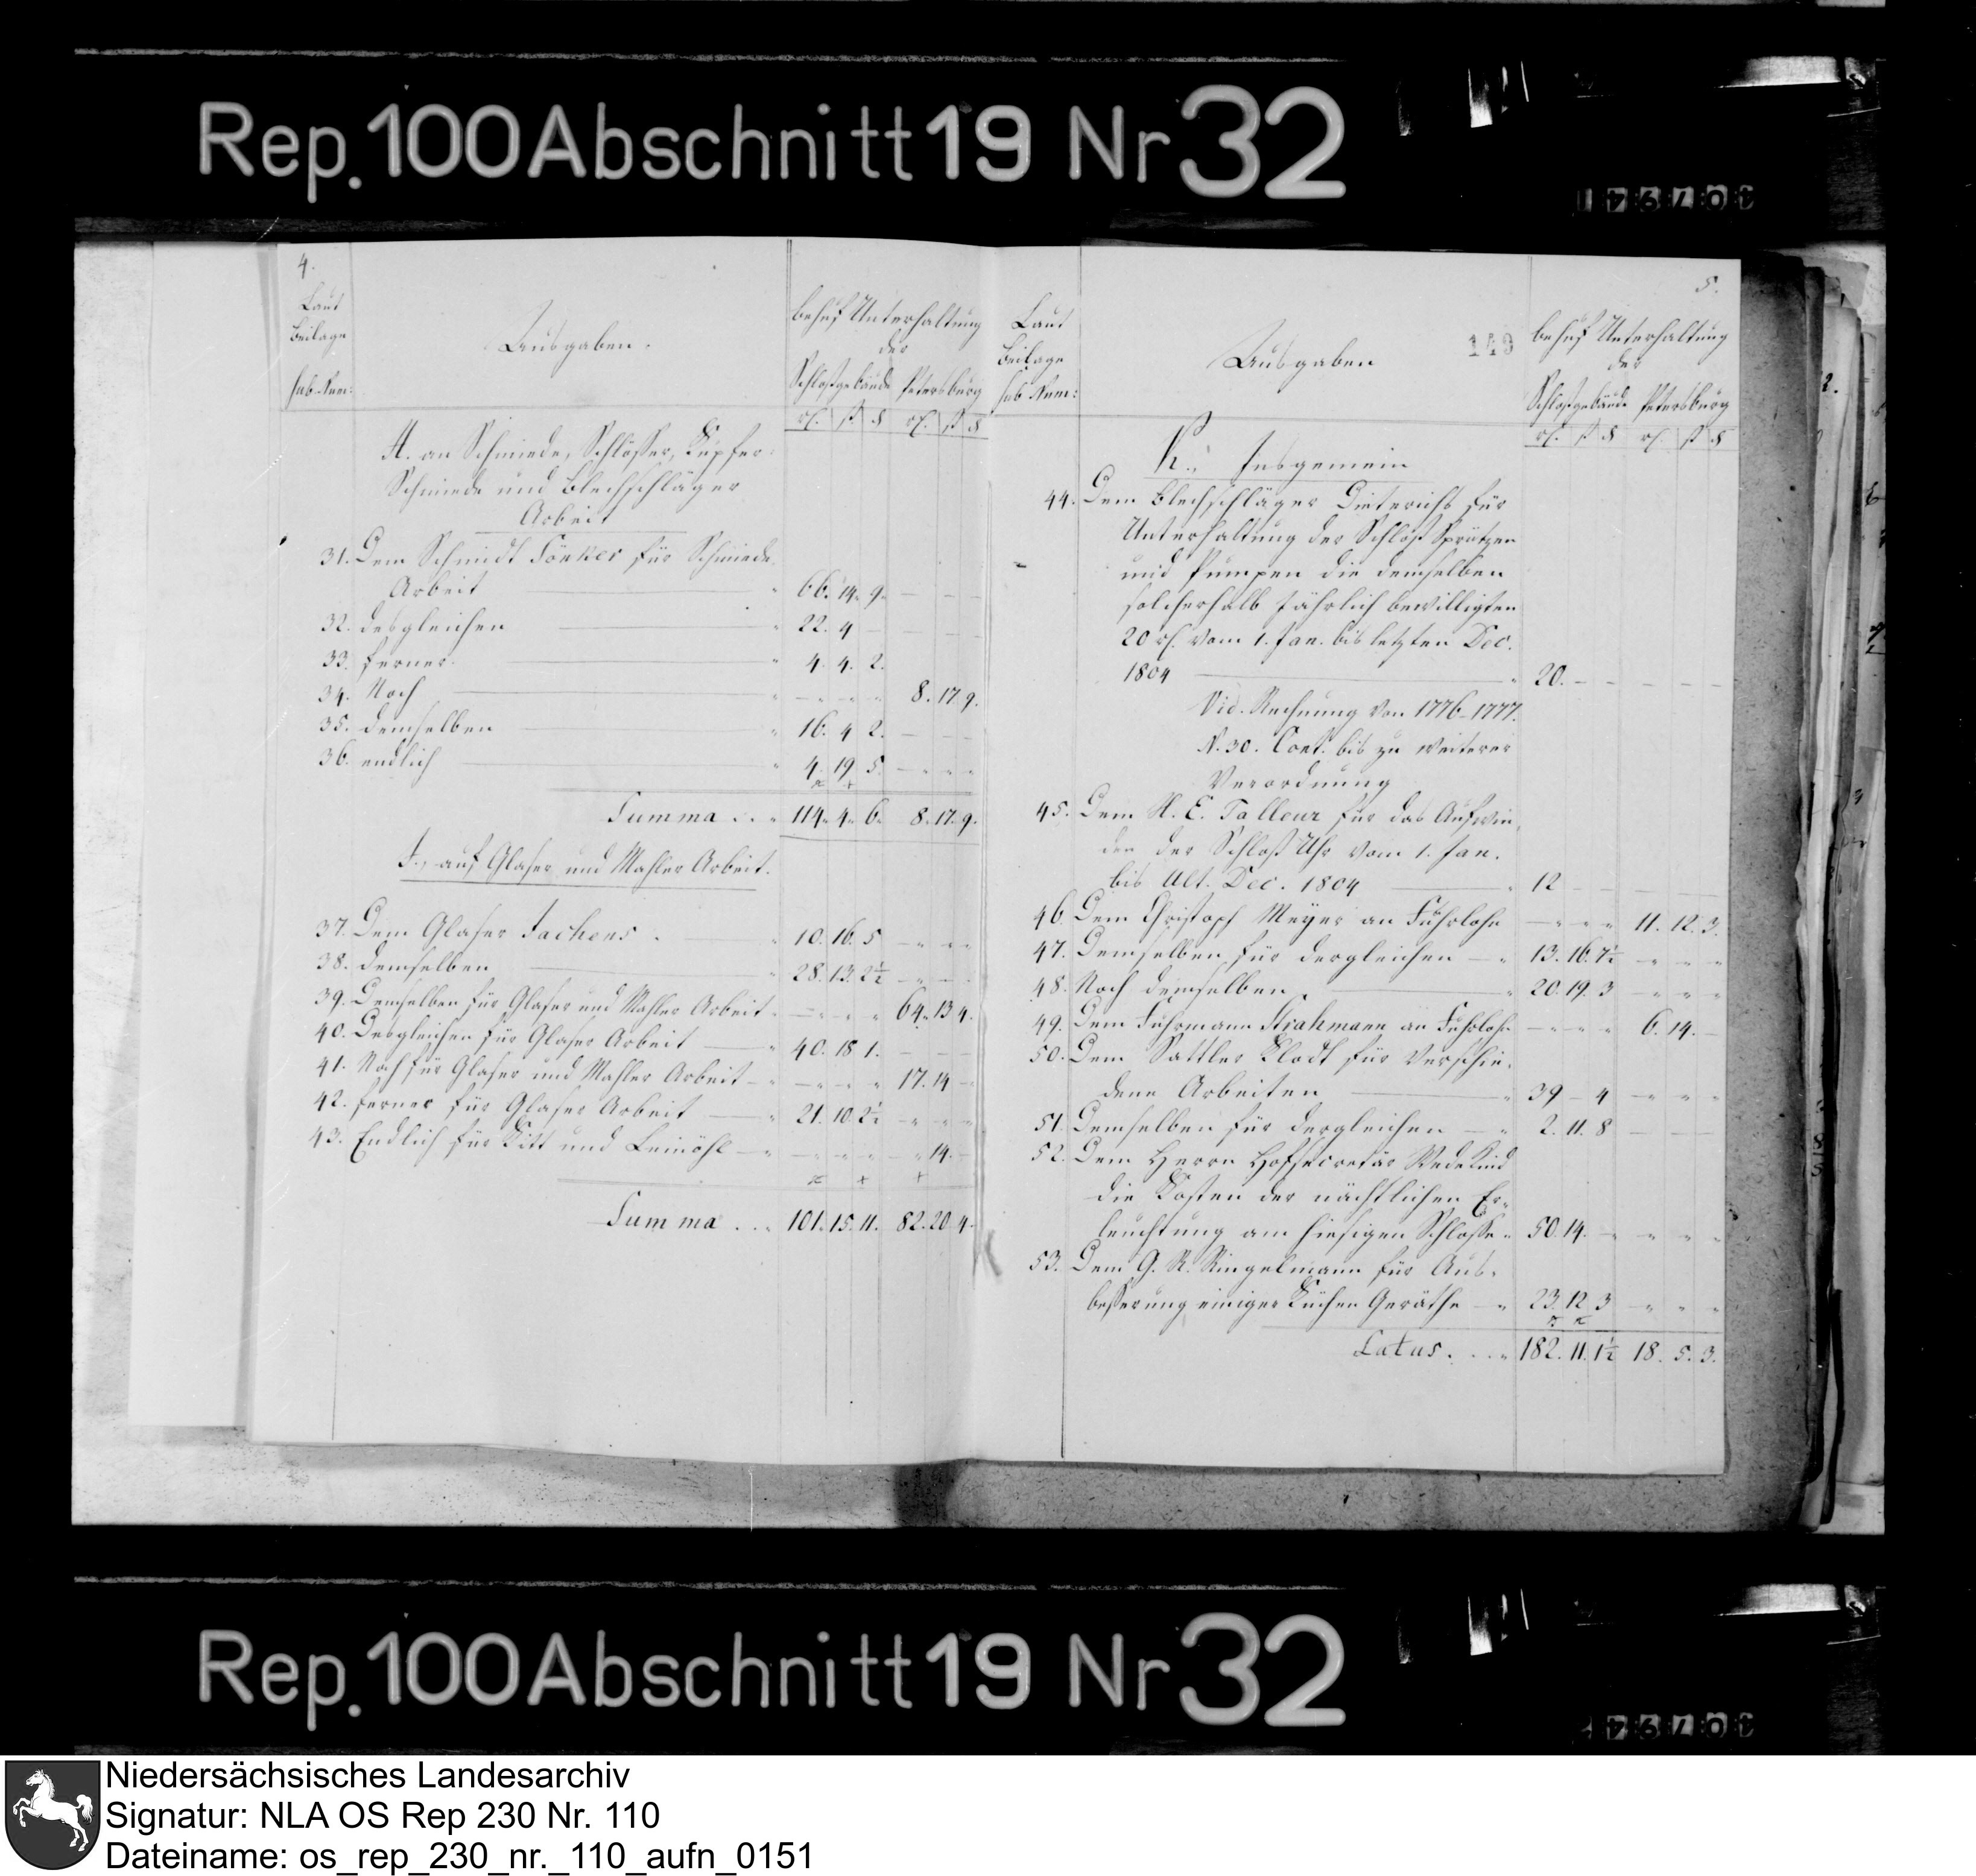 Rep. 100 Abschnitt 19 Nr 32
4.
Laut
Beilage
sub Num:
Ausgaben.
behuf Unterhaltung
der
Schloßgebäude Petersburg
H. an Schmiede, Schlösser, Kupfer-
Schmiede und Blechschläger
Arbeit
31. Dem Schmidt Tönker für Schmiede
Arbeit 66. 14. 9.
32. desgleichen 22. 4
33. ferner 4. 4. 2.
34. Noch 8. 17. 9.
35. demselben 16. 4 2.
36. endlich 4. 19. 5.
Summa 114. 4. 6. 8. 17. 9.
J., auf Glaser und Mahler Arbeit.
37. Dem Glaser Jachens 10. 16. 5
38. demselben 28. 13. 2½
39. Demselben für Glaser und Mahler Arbeit 64. 13 4.
40. Desgleichen für Glaser Arbeit 40. 18 1.
41. Noch für Glaser und Mahler Arbeit 17. 14
42. ferner für Glaser Arbeit 21. 10. 2½
43. Endlich für Kitt und Leinöhl 14.
Summa 101. 15. 11. 82. 20 4.
5.
149
Laut
Beilage
sub Num:
Ausgaben
behuf Unterhaltung
der
Schloßgebäude Petersburg
K., Insgemein
44. Dem Blechschläger Dieterichs für
Unterhaltung der Schloß Sprützen
und Pumpen die demselben
solcherhalb jährlich bewilligten
20 rl. vom 1. Jan. bis letzten Dec.
1804 20.
Vid. Rechnung von 1776-1777.
N. 30. Cont. bis zu weiterer
Verordnung
45. Dem H. E. Talleur für das Aufwin-
den der Schloß Uhr vom 1. Jan.
bis Ult. Dec. 1804 12
46. Dem Christoph Meyer an Fuhrlohn 11. 12. 3.
47. Demselben für dergleichen 13. 16. 7½
48. Noch demselben 20. 19. 3
49. Dem Fuhrmann Strahmann an Fuhrlohn 6. 14.
50. Dem Sattler Klodt für verschie-
dene Arbeiten 39 - 4
51. Demselben für dergleichen 2. 11. 8
52. Dem Herrn Hofsecretär Wedekind
die Kosten der nächtlichen Er-
leuchtung am hiesigen Schlosse 50. 14.
53. Dem G. R. Ringelmann für Aus-
besserung einiger Küchen Geräthe 23. 12. 3
Latus. 182. 11. 1½ 18. 5. 3.
Rep. 100 Abschnitt 19 Nr 32
Niedersächsisches Landesarchiv
Signatur: NLA OS Rep 230 Nr. 110
Dateiname: os_rep_230_nr._110_aufn_0151